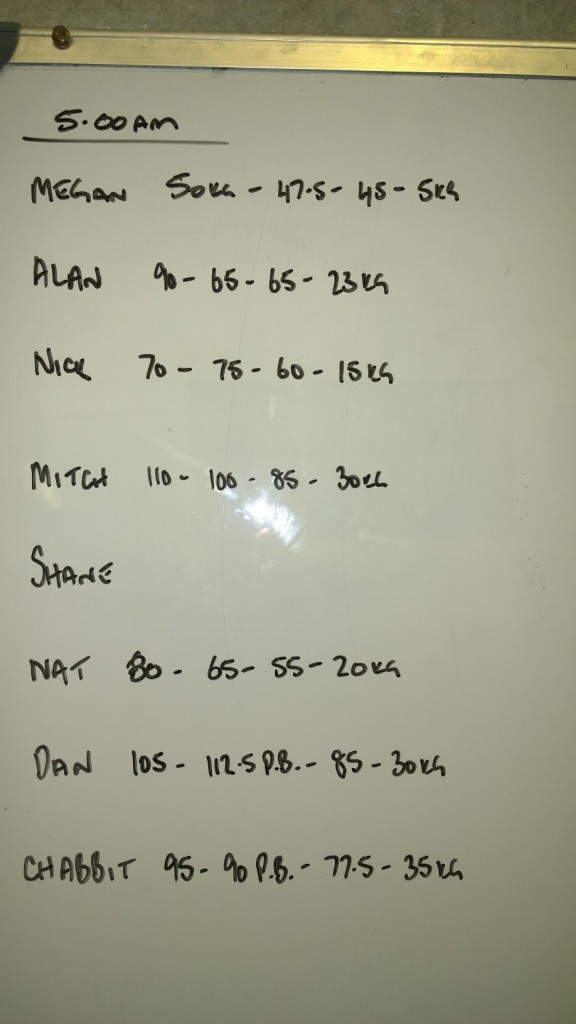 5.00AM
MEGAN 50KG - 47.5 - 45 - 5KG
ALAN 90 - 65 - 65 - 23KG
NICK 70 - 75 - 60 - 15KG
MITCH 110 - 100 - 85 - 30KG
SHANE
NAT 80 - 65 - 55 - 20KG
DAN 105 - 112.5 P.B. - 85 - 30KG
CHABBIT 95 - 90 P.B. - 77.5 - 35KG